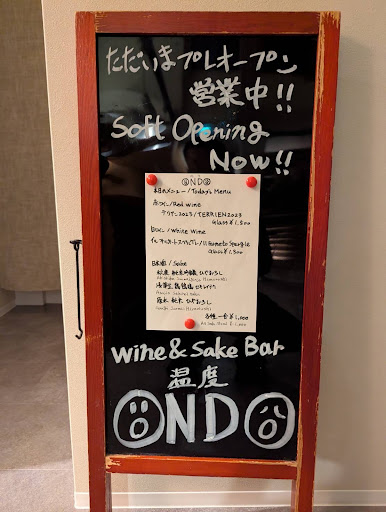 ただいまプレオープン
営業中!!
Soft Opening
Now!!
ONDO
本日のメニュー/Today's Menu
赤ワイン/Red Wine
テリヤン2023/TERRIEN2023
Glass ¥1,500
白ワイン/White Wine
Glass ¥1,500
日本酒/Sake
純米吟醸 ひやおろし
純米 ひやおろし
各種 一合 ¥1,000
Wine & Sake Bar
温度
ONDO